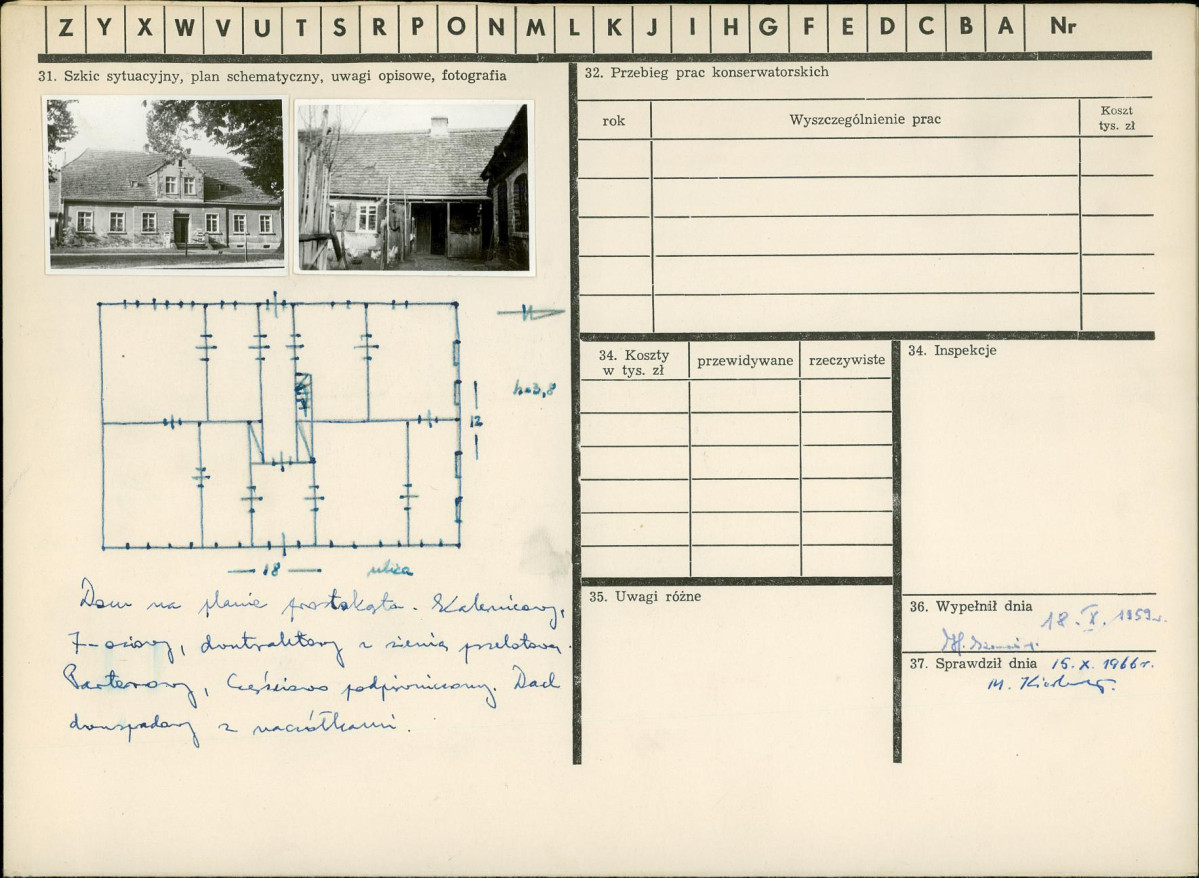 Z Y X W V U T S R P O N M L K J I H G F E D C B A Nr
31. Szkic sytuacyjny, plan schematyczny, uwagi opisowe, fotografia
N
h=3,8
12
18 ulica
Dom na planie prostokąta. Kalenicowy,
7-osiowy, dwutraktowy z sienią przelotową.
Parterowy, częściowo podpiwniczony. Dach
dwuspadowy z naczółkami.
32. Przebieg prac konserwatorskich
rok Wyszczególnienie prac Koszt
tys. zł
34. Koszty
w tys. zł przewidywane rzeczywiste
34. Inspekcje
35. Uwagi różne
36. Wypełnił dnia 18. X. 1959 r.
37. Sprawdził dnia 15. X. 1966 r.
M.